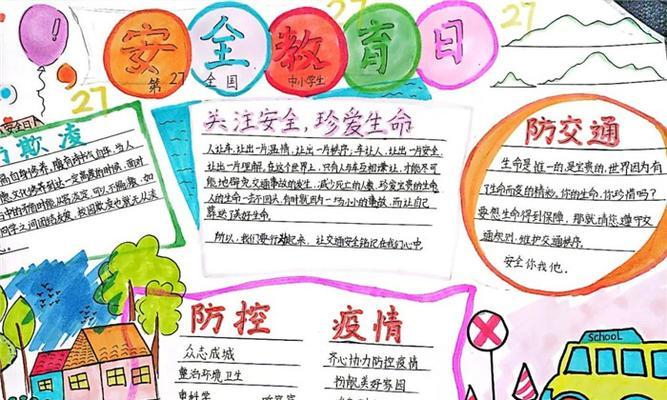 27
27
27
安全教育日
第27 全国 中小学生
安全日
防欺凌
关注安全,珍爱生命
人让车,让出一片温情,让出一片秩序,车让人,让出一片安全,
让出一片理解,在这个世上,只有人与车互相谦让,才能不可
能地研究交通事故的发生,减少死亡的人数,珍爱宝贵的生命
人的生命一去不回头,有时就因为一场小小的事故,而让自己
葬送了美好生命。
所以,我们要行动起来,让交通安全铭记在我们心中。
防交通
生命是惟一的,是宝贵的,世界因为有
了生命而变的精彩。你的生命,你珍惜吗?
要想生命得到保障,那就请您遵守交
通规则,维护交通秩序。
安全你我他。
防控 疫情
众志成城
整治环境卫生
齐心协力防控疫情
扮靓美好家园
SCHOOL